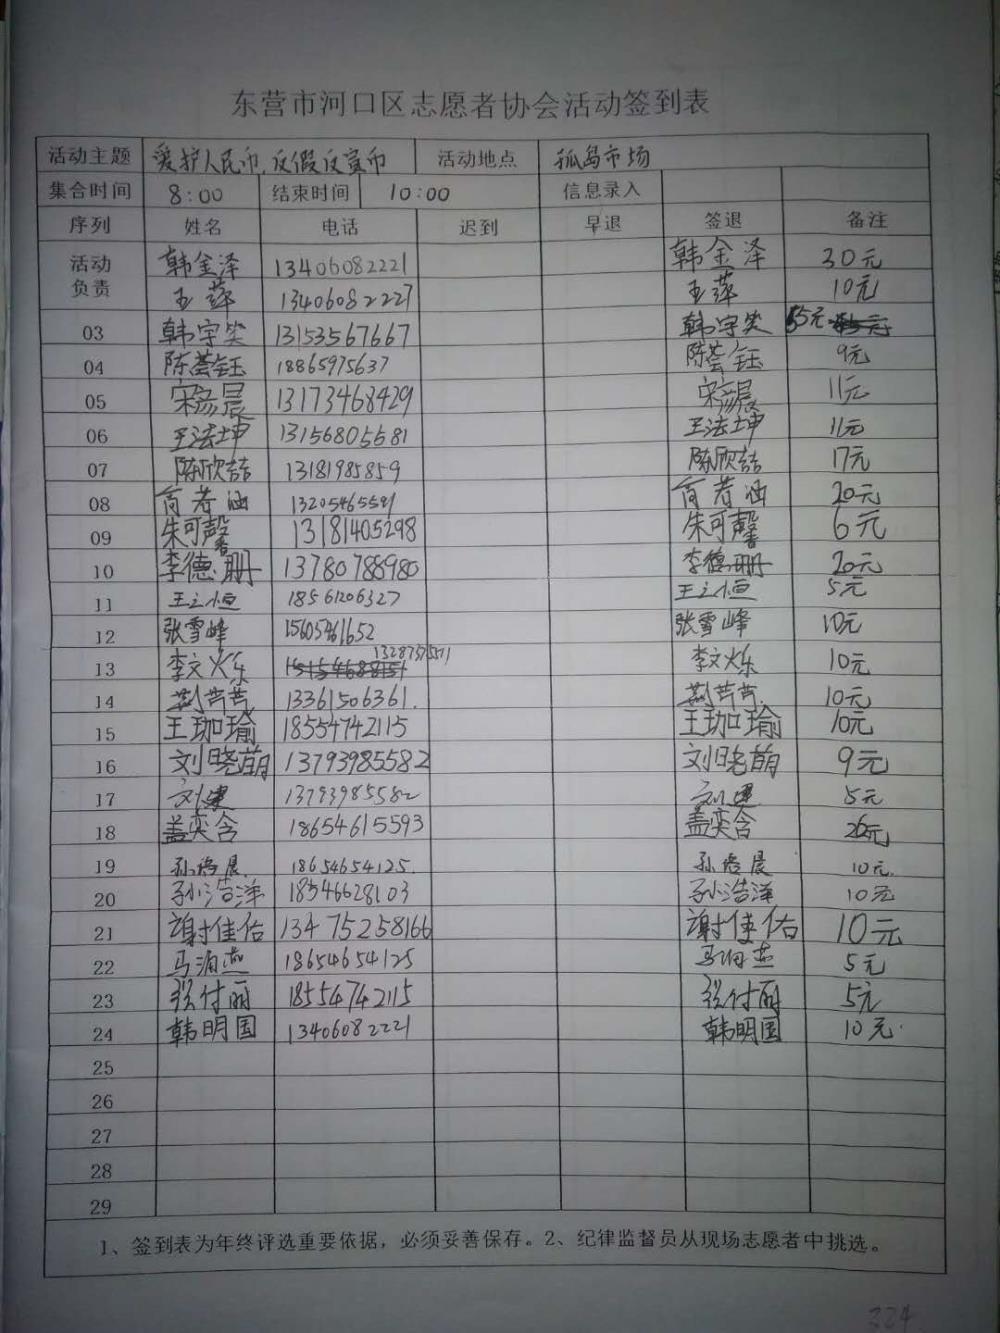 东营市河口区志愿者协会活动签到表
活动主题 爱护人民币,反假反宣币 活动地点 孤岛市场
集合时间 8:00 结束时间 10:00 信息录入
序列 姓名 电话 迟到 早退 签退 备注
活动负责 韩金泽 13406082221 韩金泽 30元
王萍 13406082227 王萍 10元
03 韩宇笑 13153567667 韩宇笑 55元
04 陈荟钰 18865975637 陈荟钰 9元
05 宋彦晨 13173468429 宋彦晨 11元
06 王法坤 13156805581 王法坤 11元
07 陈欣喆 13181985859 陈欣喆 17元
08 商若涵 13205465591 商若涵 20元
09 朱可馨 13181405298 朱可馨 6元
10 李德珊 13780788980 李德珊 20元
11 王之恒 18561206327 王之恒 5元
12 张雪峰 15605461652 张雪峰 10元
13 李文烁 13287375571 李文烁 10元
14 荆芹芹 13361506361. 荆芹芹 10元
15 王珈瑜 18554742115 王珈瑜 10元
16 刘晓萌 13793985582 刘晓萌 9元
17 刘建 13793985582 刘建 5元
18 盖奕含 18654615593 盖奕含 26元
19 孙培晨 18654654125 孙培晨 10元
20 孙浩洋 18546628103 孙浩泽 10元
21 谢佳佑 13475258166 谢佳佑 10元
22 马海燕 18654654125 马海燕 5元
23 张付丽 18554742115 张付丽 5元
24 韩明国 13406082221 韩明国 10元
25
26
27
28
29
1、签到表为年终评选重要依据，必须妥善保存。2、纪律监督员从现场志愿者中挑选。
224